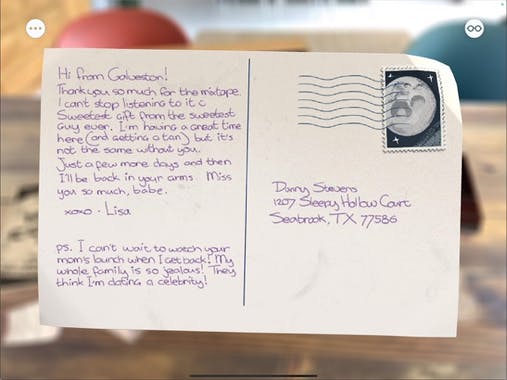 Hi from Galveston!
Thank you so much for the mixtape.
I can't stop listening to it c
Sweetest gift from the sweetest
guy ever. I'm having a great time
here (and getting a tan) but it's
not the same without you.
Just a few more days and then
I'll be back in your arms. Miss
you so much, babe.
xoxo - Lisa
ps. I can't wait to watch your
mom's launch when I get back! My
whole family is so jealous! They
think I'm dating a celebrity!
Danny Stevens
1207 Sleepy Hollow Court
Seabrook, TX 77586